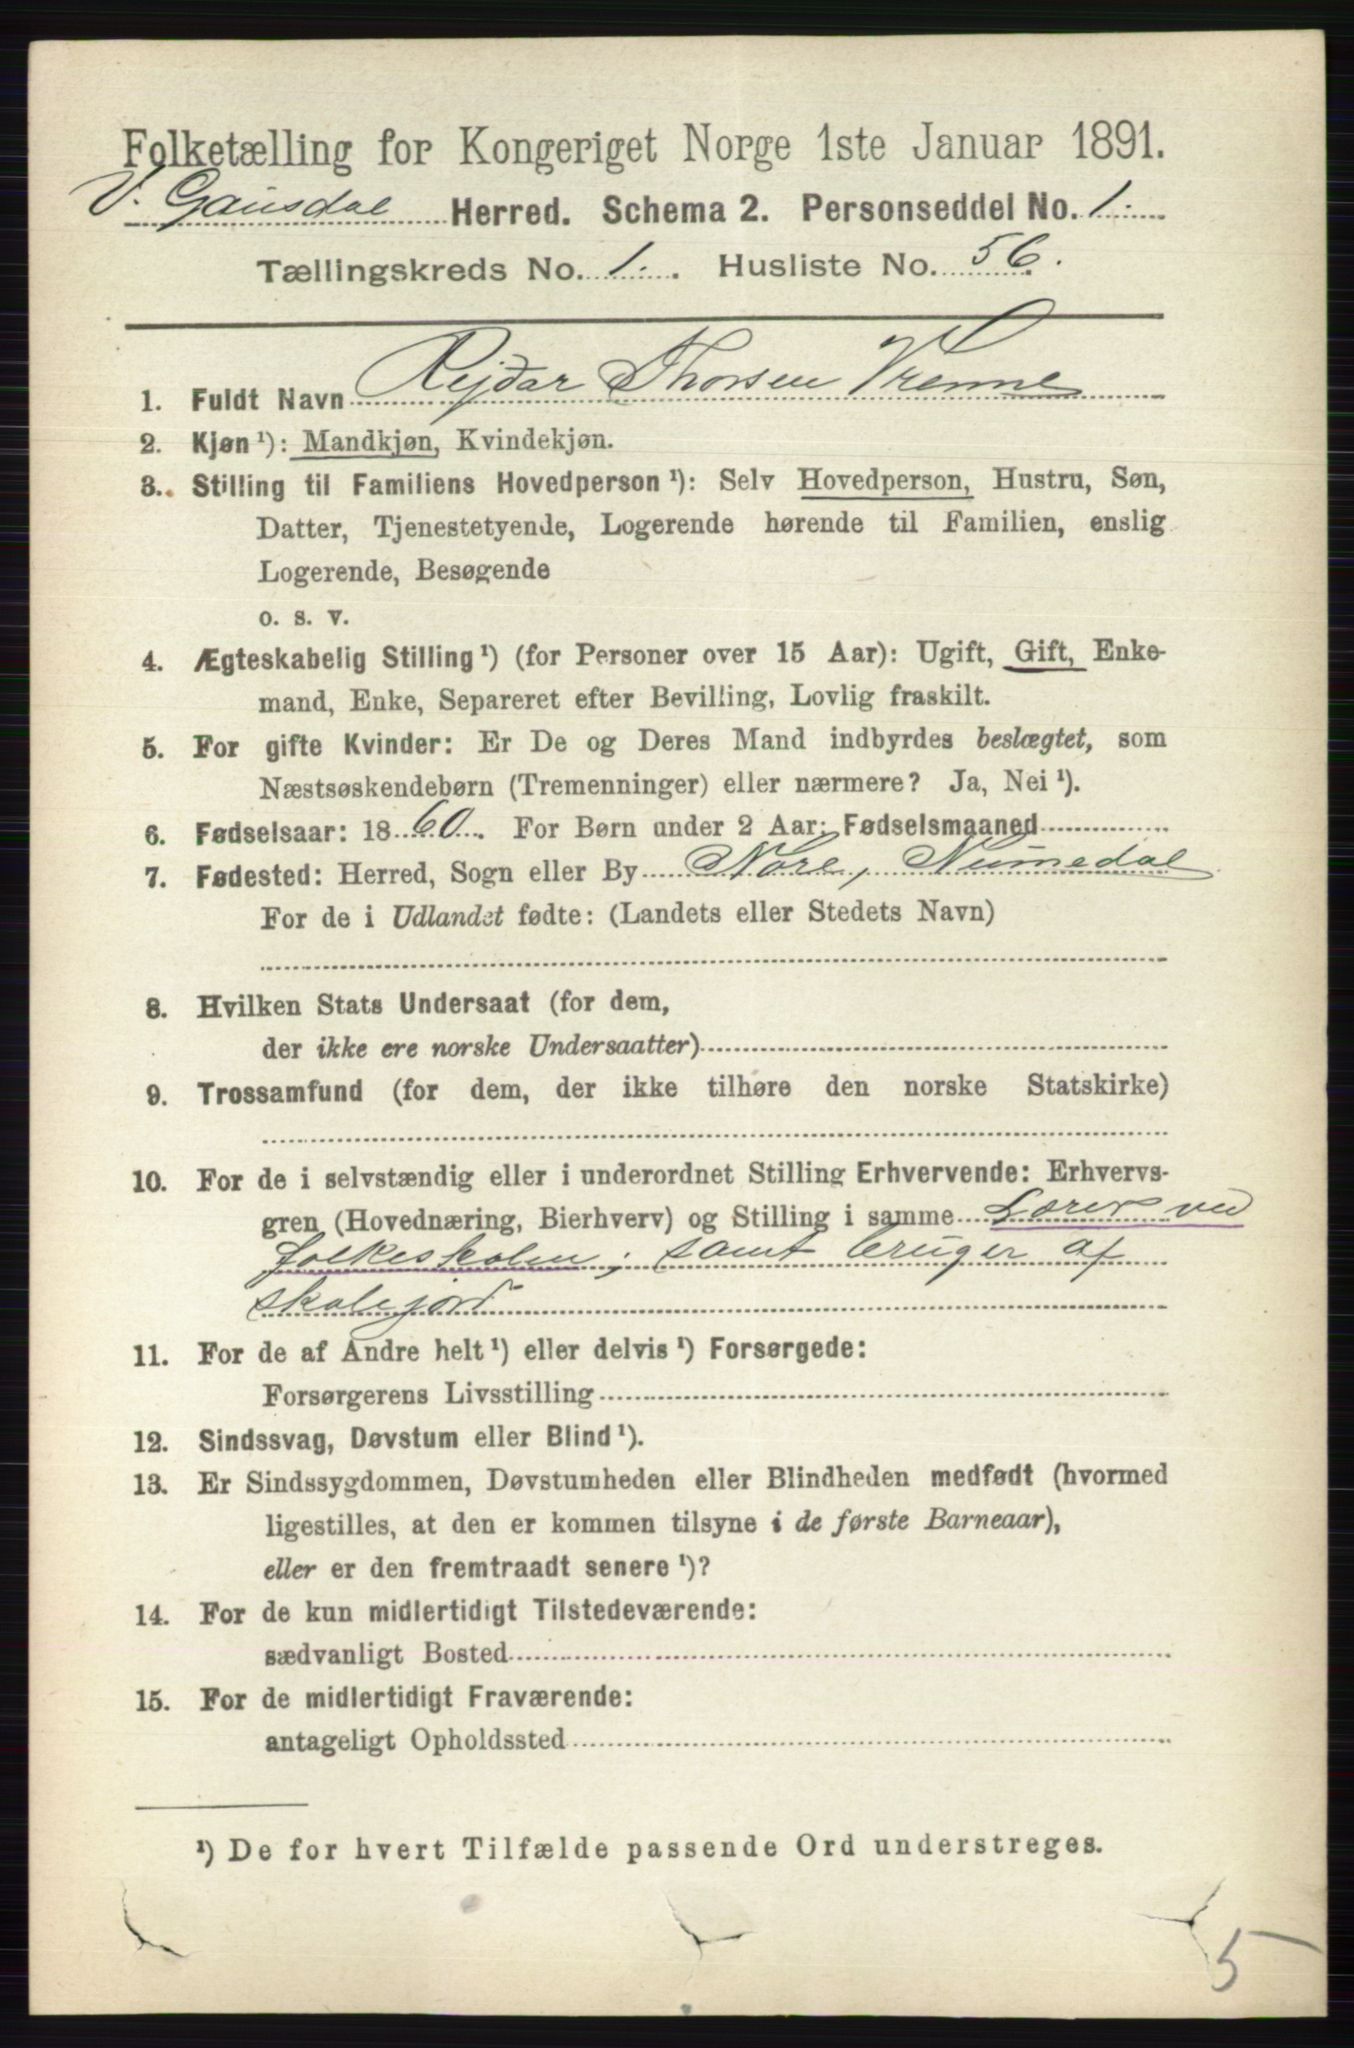 Folketælling for Kongeriget Norge 1ste Januar 1891.
V. Gausdal Herred. Schema 2. Personseddel No. 1.
Tællingskreds No. 1. Husliste No. 56.
1. Fuldt Navn Rejdar Thorsen Vrenne
2. Kjøn ¹): Mandkjøn, Kvindekjøn.
3. Stilling til Familiens Hovedperson ¹): Selv Hovedperson, Hustru, Søn,
Datter, Tjenestetyende, Logerende hørende til Familien, enslig
Logerende, Besøgende
o. s. v.
4. Ægteskabelig Stilling ¹) (for Personer over 15 Aar): Ugift, Gift, Enke-
mand, Enke, Separeret efter Bevilling, Lovlig fraskilt.
5. For gifte Kvinder: Er De og Deres Mand indbyrdes beslægtet, som
Næstsøskendebørn (Tremenninger) eller nærmere? Ja, Nei ¹).
6. Fødselsaar: 1860. For Børn under 2 Aar: Fødselsmaaned
7. Fødested: Herred, Sogn eller By Nore, Numedal
For de i Udlandet fødte: (Landets eller Stedets Navn)
8. Hvilken Stats Undersaat (for dem,
der ikke ere norske Undersaatter)
9. Trossamfund (for dem, der ikke tilhøre den norske Statskirke)
10. For de i selvstændig eller i underordnet Stilling Erhvervende: Erhvervs-
gren (Hovednæring, Bierhverv) og Stilling i samme Lærer ved
folkeskolen, samt bruger af
skolejord
11. For de af Andre helt ¹) eller delvis ¹) Forsørgede:
Forsørgerens Livsstilling
12. Sindssvag, Døvstum eller Blind ¹).
13. Er Sindssygdommen, Døvstumheden eller Blindheden medfødt (hvormed
ligestilles, at den er kommen tilsyne i de første Barneaar),
eller er den fremtraadt senere ¹)?
14. For de kun midlertidigt Tilstedeværende:
sædvanligt Bosted
15. For de midlertidigt Fraværende:
antageligt Opholdssted
¹) De for hvert Tilfælde passende Ord understreges.
5